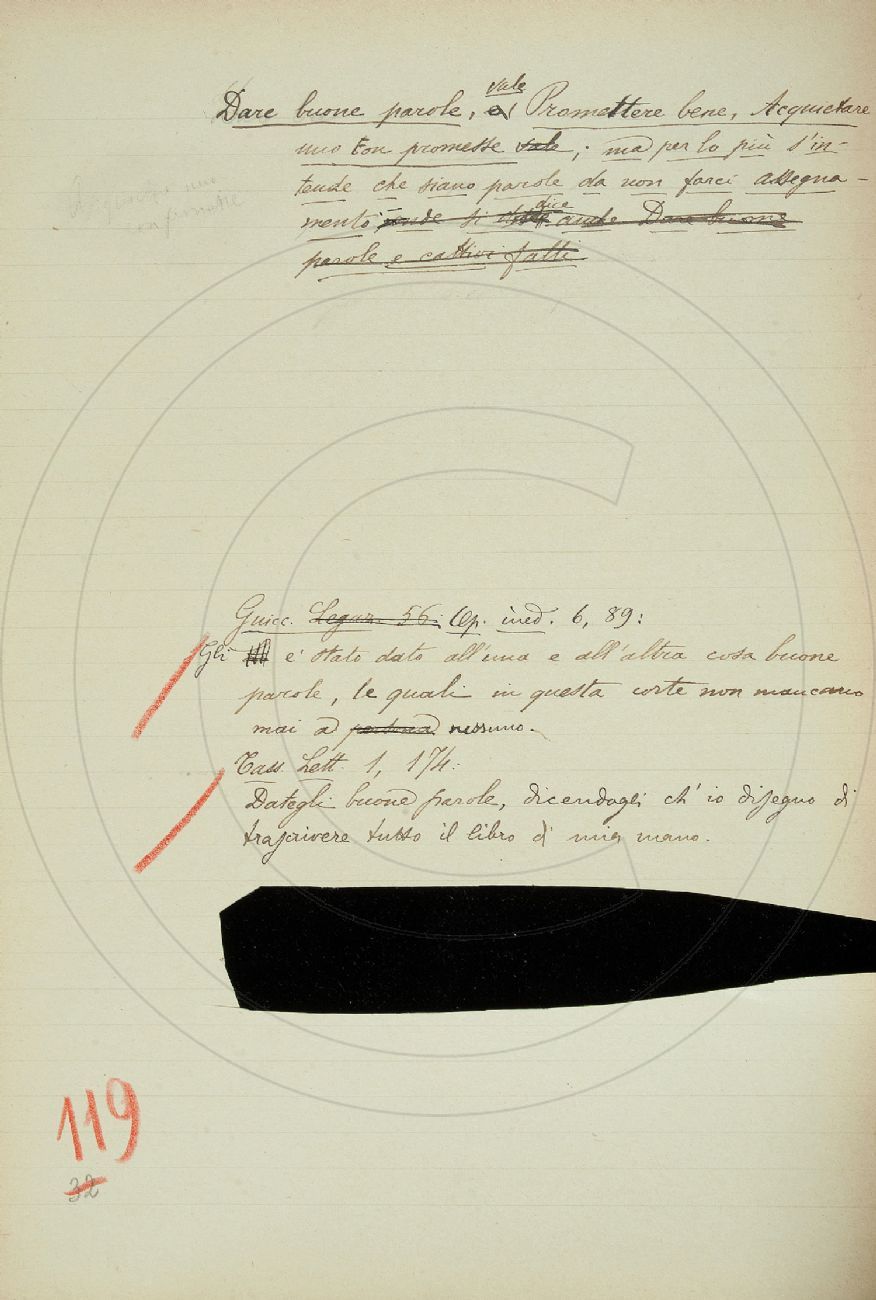 vale
Dare buone parole, è Promettere bene, Acquietare
uno con promesse vale; ma per lo più s'in-
tende che siano parole da non farci assegna-
dice
mento onde si anche Dare buone
parole e cattivi fatti
Acquietare uno
con promesse
Guicc. Legaz. 56. Op. ined. 6, 89:
Gli è stato dato all'una e all'altra cosa buone
parole, le quali in questa corte non mancano
mai a nessuno.
Tass. Lett. 1, 174:
Dategli buone parole, dicendogli ch'io disegno di
trascrivere tutto il libro di mia mano.
119
32